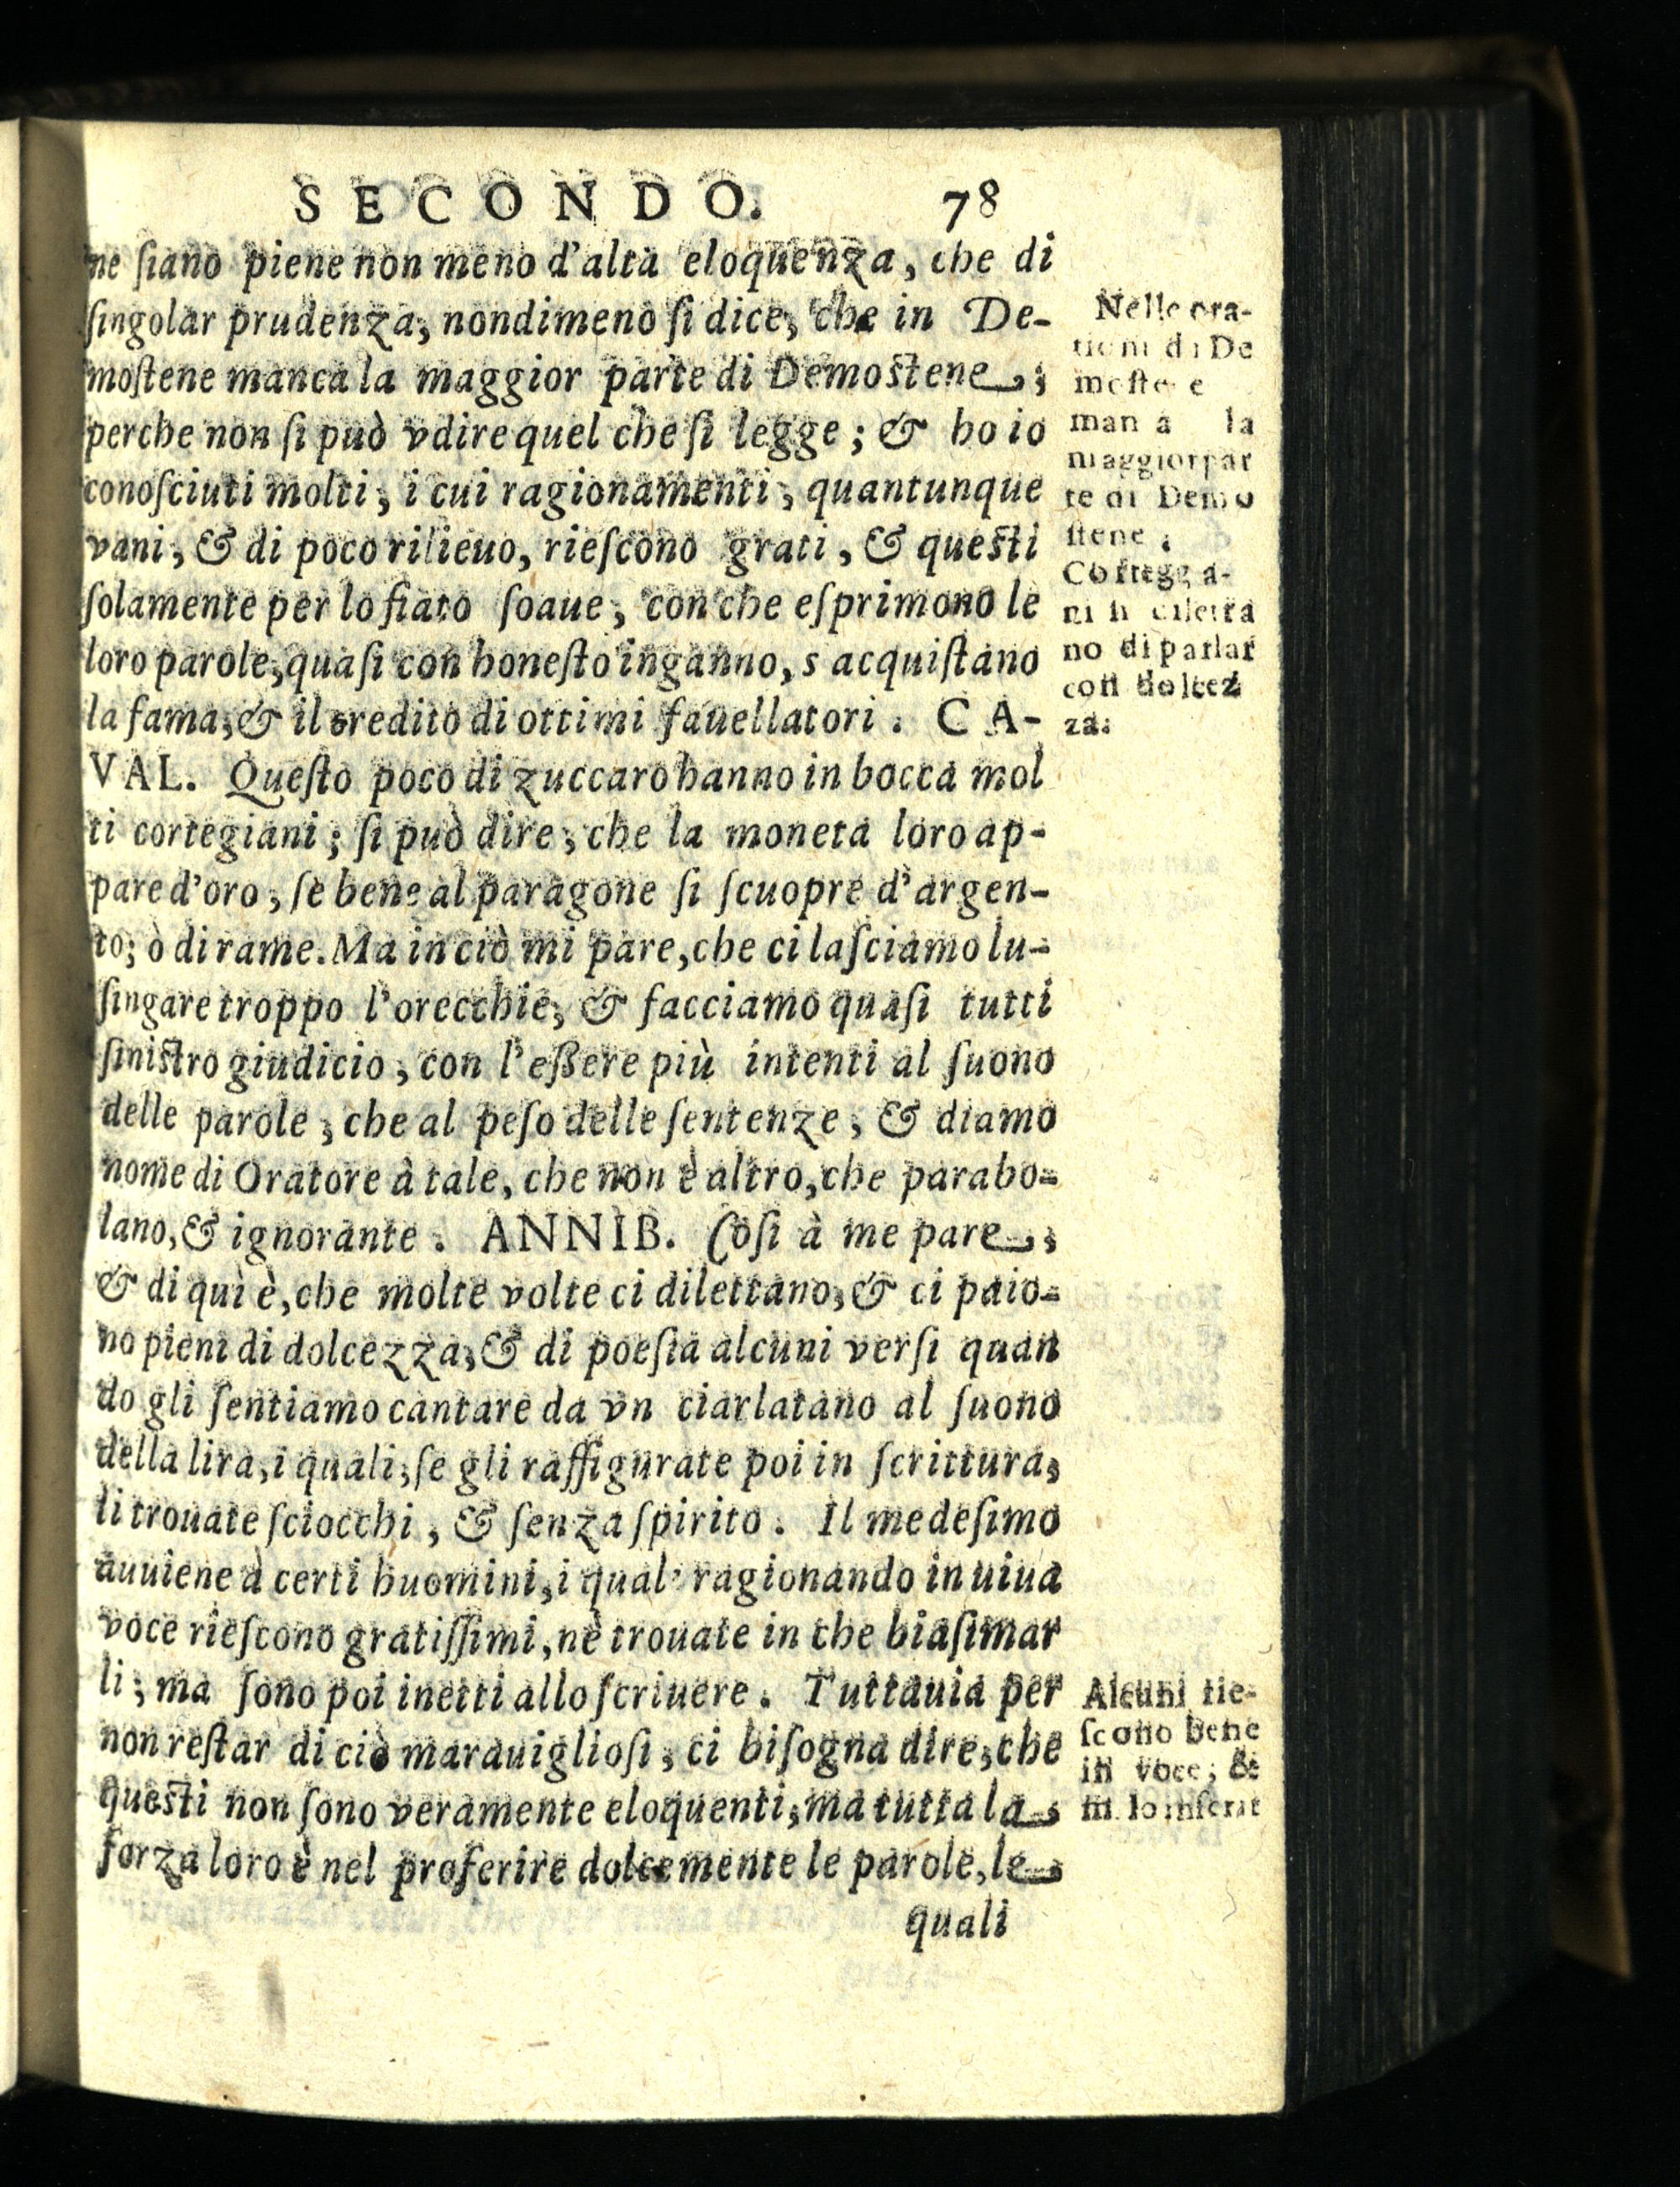 SECONDO. 78
ne ſiano piene non meno d'alta eloquenza, che di
ſingolar prudenza, nondimeno ſi dice, che in De-
moſtene manca la maggior parte di Demoſtene;
perche non ſi può vdire quel che ſi legge; & ho io
conoſciuti molti, i cui ragionamenti, quantunque
vani, & di poco rilieuo, rieſcono grati, & queſti
ſolamente per lo fiato ſoaue, con che eſprimono le
loro parole, quaſi con honeſto inganno, s acquiſtano
la fama, & il credito di ottimi fauellatori. CA-
VAL. Queſto poco di zuccaro hanno in bocca mol
ti cortegiani; ſi può dire, che la moneta loro ap-
pare d'oro, ſe bene al paragone ſi ſcuopre d'argen-
to; ò di rame. Ma in ciò mi pare, che ci laſciamo lu-
ſingare troppo l'orecchie, & facciamo quaſi tutti
ſiniſtro giudicio, con l'eßere più intenti al ſuono
delle parole, che al peſo delle ſentenze, & diamo
nome di Oratore à tale, che non è altro, che parabo-
lano, & ignorante. ANNIB. Coſi à me pare,
& di quì è, che molte volte ci dilettano, & ci paio-
no pieni di dolcezza, & di poeſia alcuni verſi quan
do gli ſentiamo cantare da vn ciarlatano al ſuono
della lira, i quali, ſe gli raffigurate poi in ſcrittura,
li trouate ſciocchi, & ſenza ſpirito. Il medeſimo
auuiene à certi huomini, i quali ragionando in uiua
voce rieſcono gratiſſimi, nè trouate in che biaſimar
li; ma ſono poi inetti allo ſcriuere. Tuttauia per
non reſtar di ciò marauiglioſi, ci biſogna dire, che
queſti non ſono veramente eloquenti, ma tutta la
forza loro è nel proferire dolcemente le parole, le
quali
Nelle ora-
tioni di De
moſtene
manca la
maggior par
te di Demo
ſtene.
Cortegia-
ni ſi diletta
no di parlar
con dolcez
za.
Alcuni rie-
ſcono bene
in voce, &